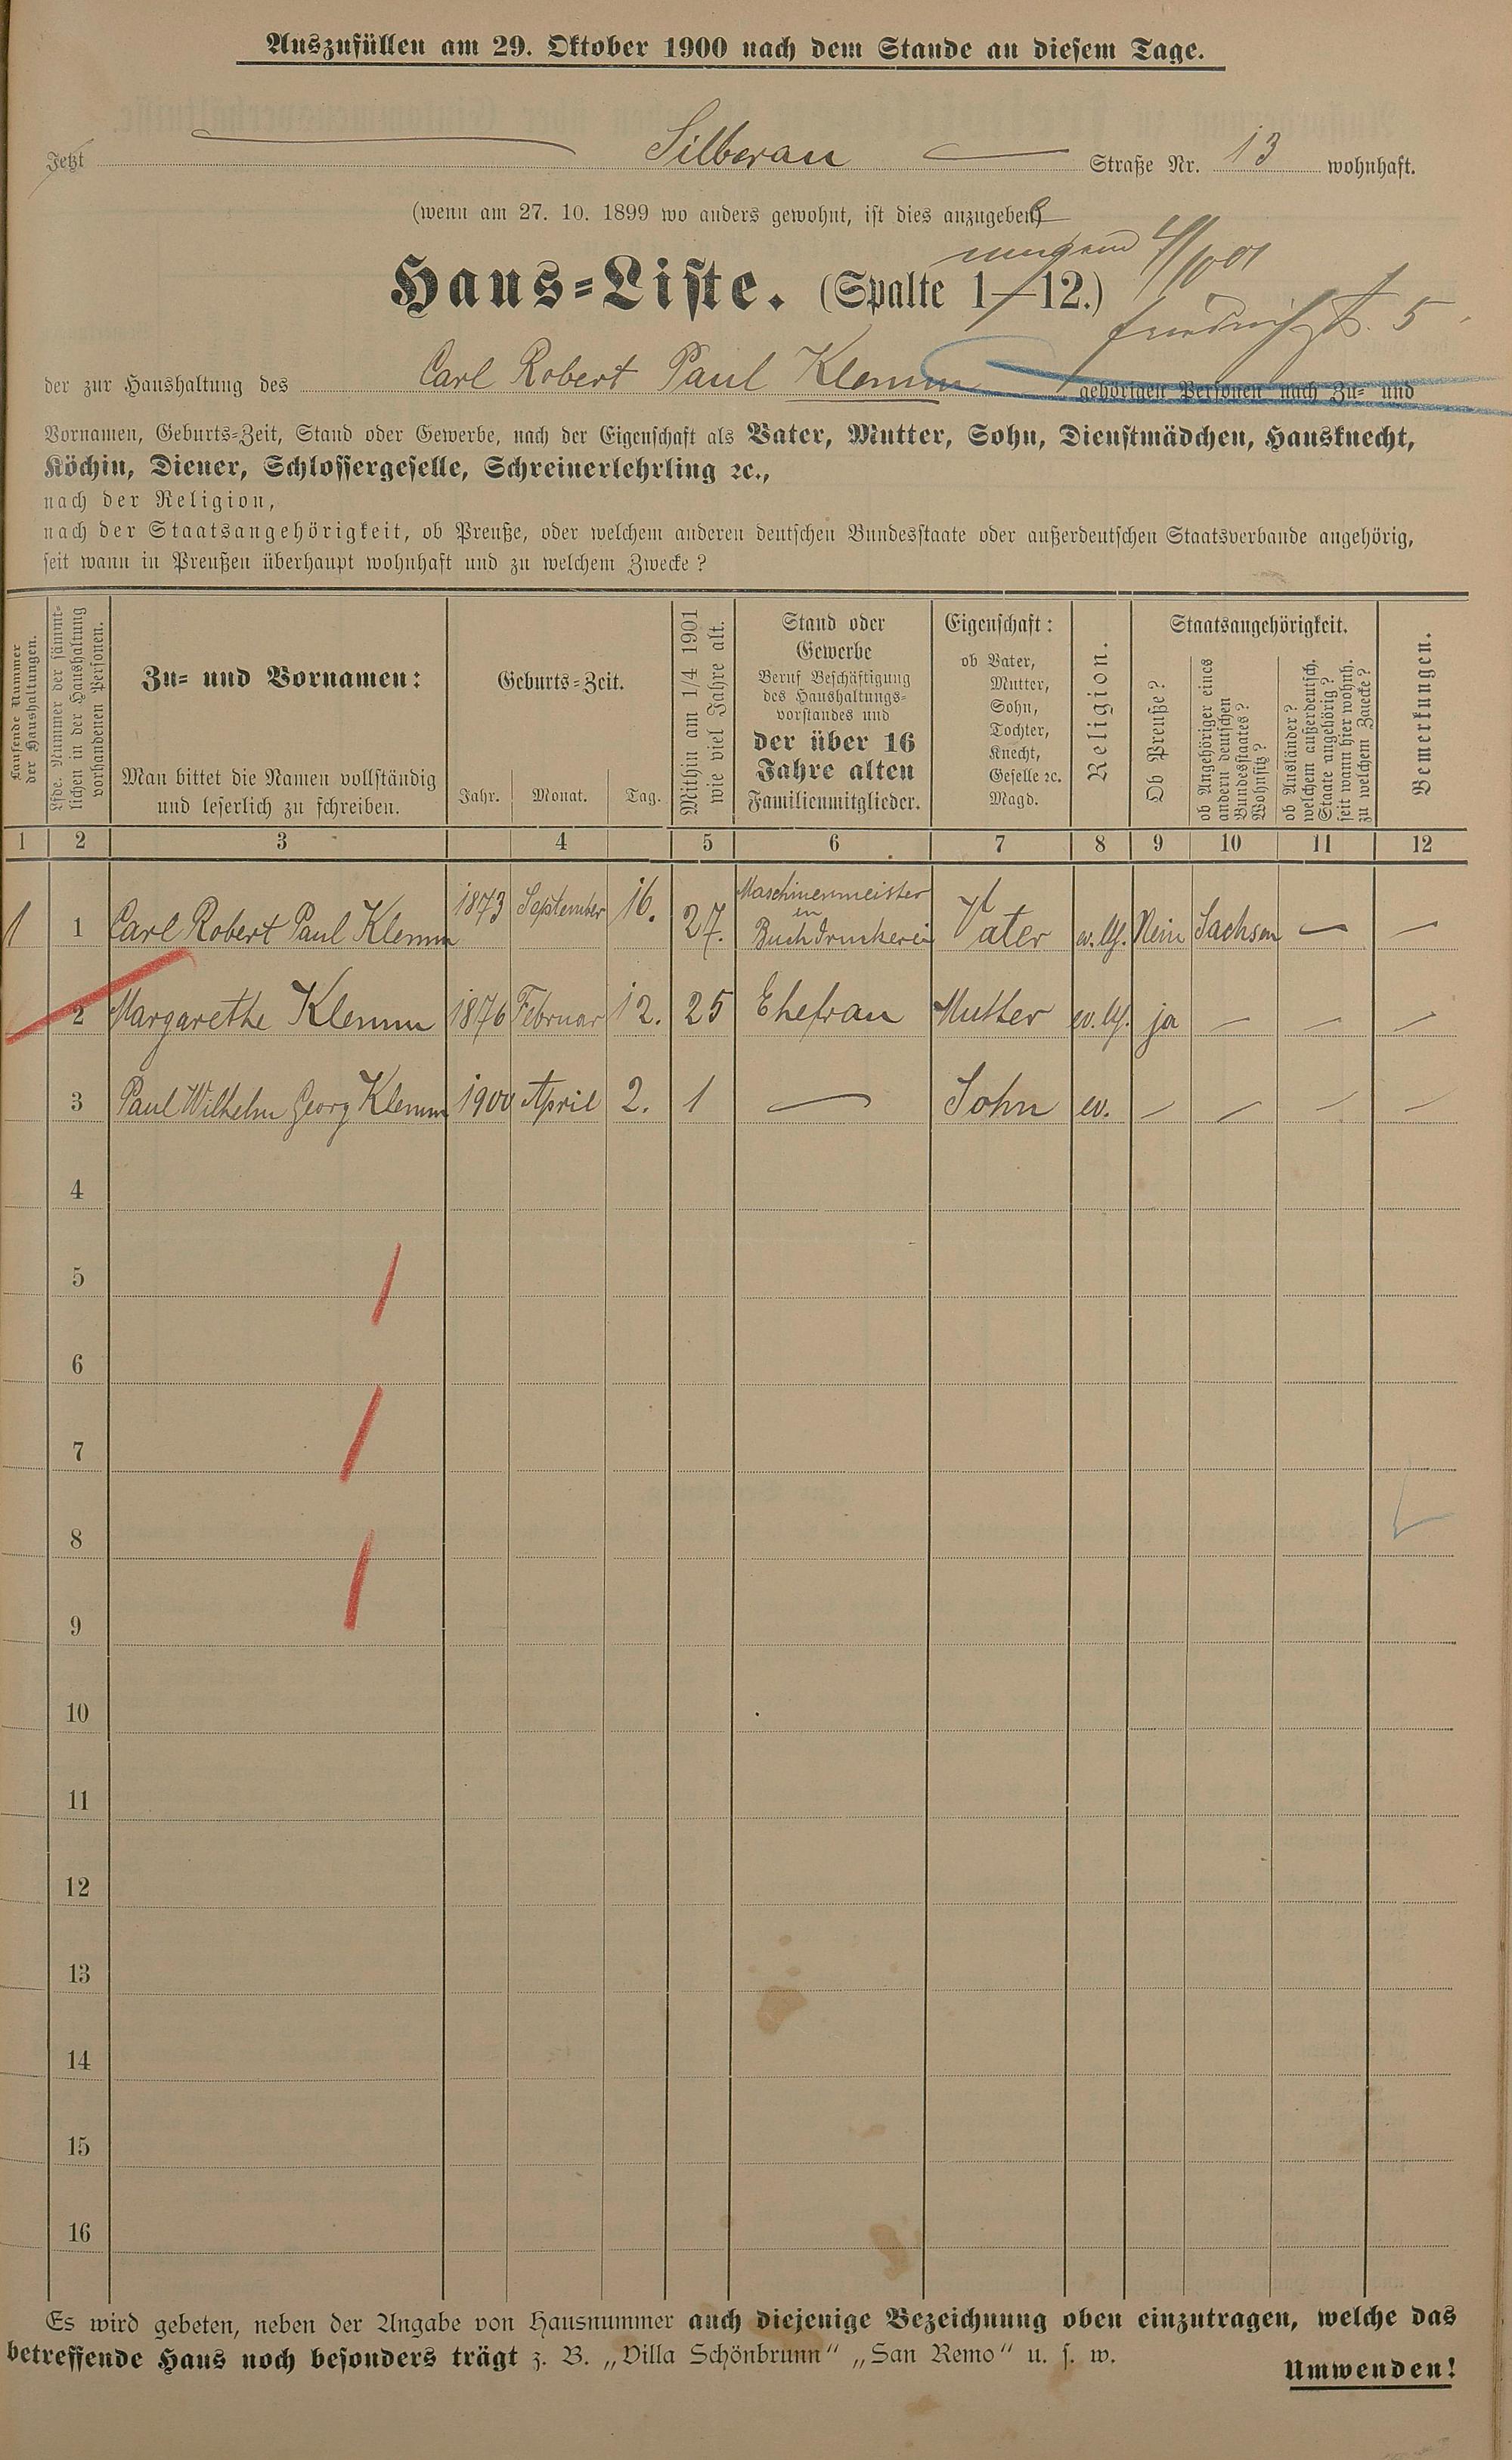 Auszufüllen am 29. Oktober 1900 nach dem Stande an diesem Tage.
Jetzt Silberau Straße Nr. 13 wohnhaft.
(wenn am 27. 10. 1899 wo anders gewohnt, ist dies anzugeben)
4/10 01
Haus-Liste. (Spalte 1–12.)
Friedrichstr. 5
der zur Haushaltung des Carl Robert Paul Klemm gehörigen Personen nach Zu- und
Vornamen, Geburts-Zeit, Stand oder Gewerbe, nach der Eigenschaft als Vater, Mutter, Sohn, Dienstmädchen, Hausknecht,
Köchin, Diener, Schlossergeselle, Schreinerlehrling ꝛc.,
nach der Religion,
nach der Staatsangehörigkeit, ob Preuße, oder welchem anderen deutschen Bundesstaate oder außerdeutschen Staatsverbande angehörig,
seit wann in Preußen überhaupt wohnhaft und zu welchem Zwecke?
Laufende Nummer
der Haushaltungen.
Lfde. Nummer der sämmt-
lichen in der Haushaltung
vorhandenen Personen.
Zu- und Vornamen:
Man bittet die Namen vollständig
und leserlich zu schreiben.
Geburts-Zeit.
Jahr. Monat. Tag.
Mithin am 1/4 1901
wie viel Jahre alt.
Stand oder
Gewerbe
Beruf Beschäftigung
des Haushaltungs-
vorstandes und
der über 16
Jahre alten
Familienmitglieder.
Eigenschaft:
ob Vater,
Mutter,
Sohn,
Tochter,
Knecht,
Geselle ꝛc.
Magd.
Religion.
Staatsangehörigkeit.
Ob Preuße?
ob Angehöriger eines
andern deutschen
Bundesstaates?
Wohnsitz?
ob Ausländer?
welchem außerdeutsch.
Staate angehörig?
seit wann hier wohnh.
zu welchem Zwecke?
Bemerkungen.
1 2 3 4 5 6 7 8 9 10 11 12
1 1 Carl Robert Paul Klemm 1873 September 16. 27. Maschinenmeister in Buchdruckerei Vater ev. luth. Nein Sachsen — —
2 Margarethe Klemm 1876 Februar 12. 25 Ehefrau Mutter ev. luth. ja — — —
3 Paul Wilhelm Georg Klemm 1900 April 2. 1 — Sohn ev. — — — —
4
5
6
7
8
9
10
11
12
13
14
15
16
Es wird gebeten, neben der Angabe von Hausnummer auch diejenige Bezeichnung oben einzutragen, welche das
betreffende Haus noch besonders trägt z. B. „Villa Schönbrunn“ „San Remo“ u. s. w.
Umwenden!